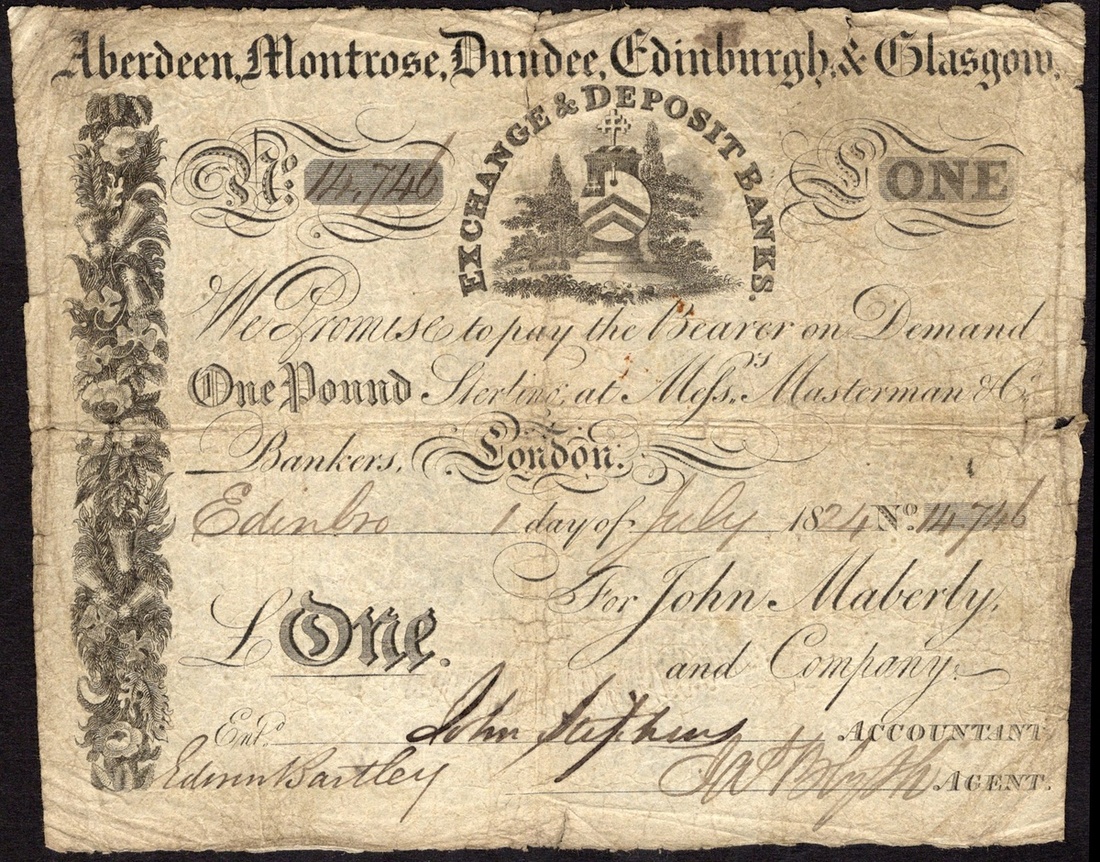 Aberdeen, Montrose, Dundee, Edinburgh, & Glasgow,
EXCHANGE & DEPOSIT BANKS.
No. 14,746
£ ONE
We Promise to pay the Bearer on Demand
One Pound Sterling, at Messrs. Masterman & Co.
Bankers, London.
Edinbro 1 day of July 1824 No. 14746
For John Maberly,
and Company.
£ One.
Entd. John Stephens ACCOUNTANT
Edwin Bartley AGENT.